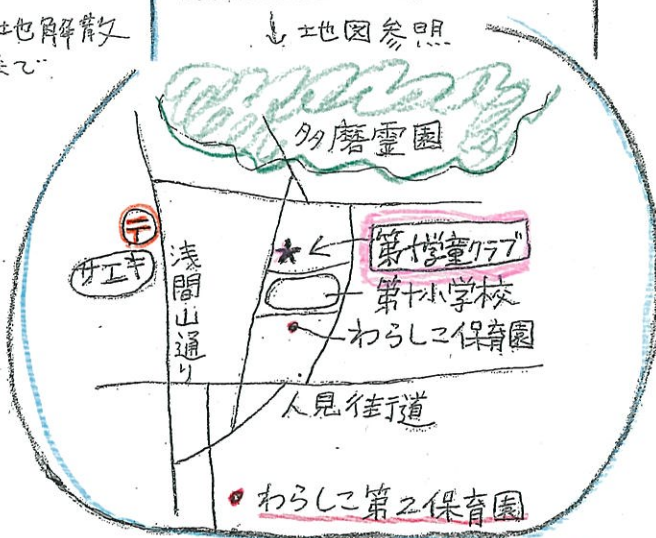 地解散
↓地図参照
まで
多磨霊園
〒
サエキ
浅間山通り
第十学童クラブ
第十小学校
わらしこ保育園
人見街道
わらしこ第2保育園